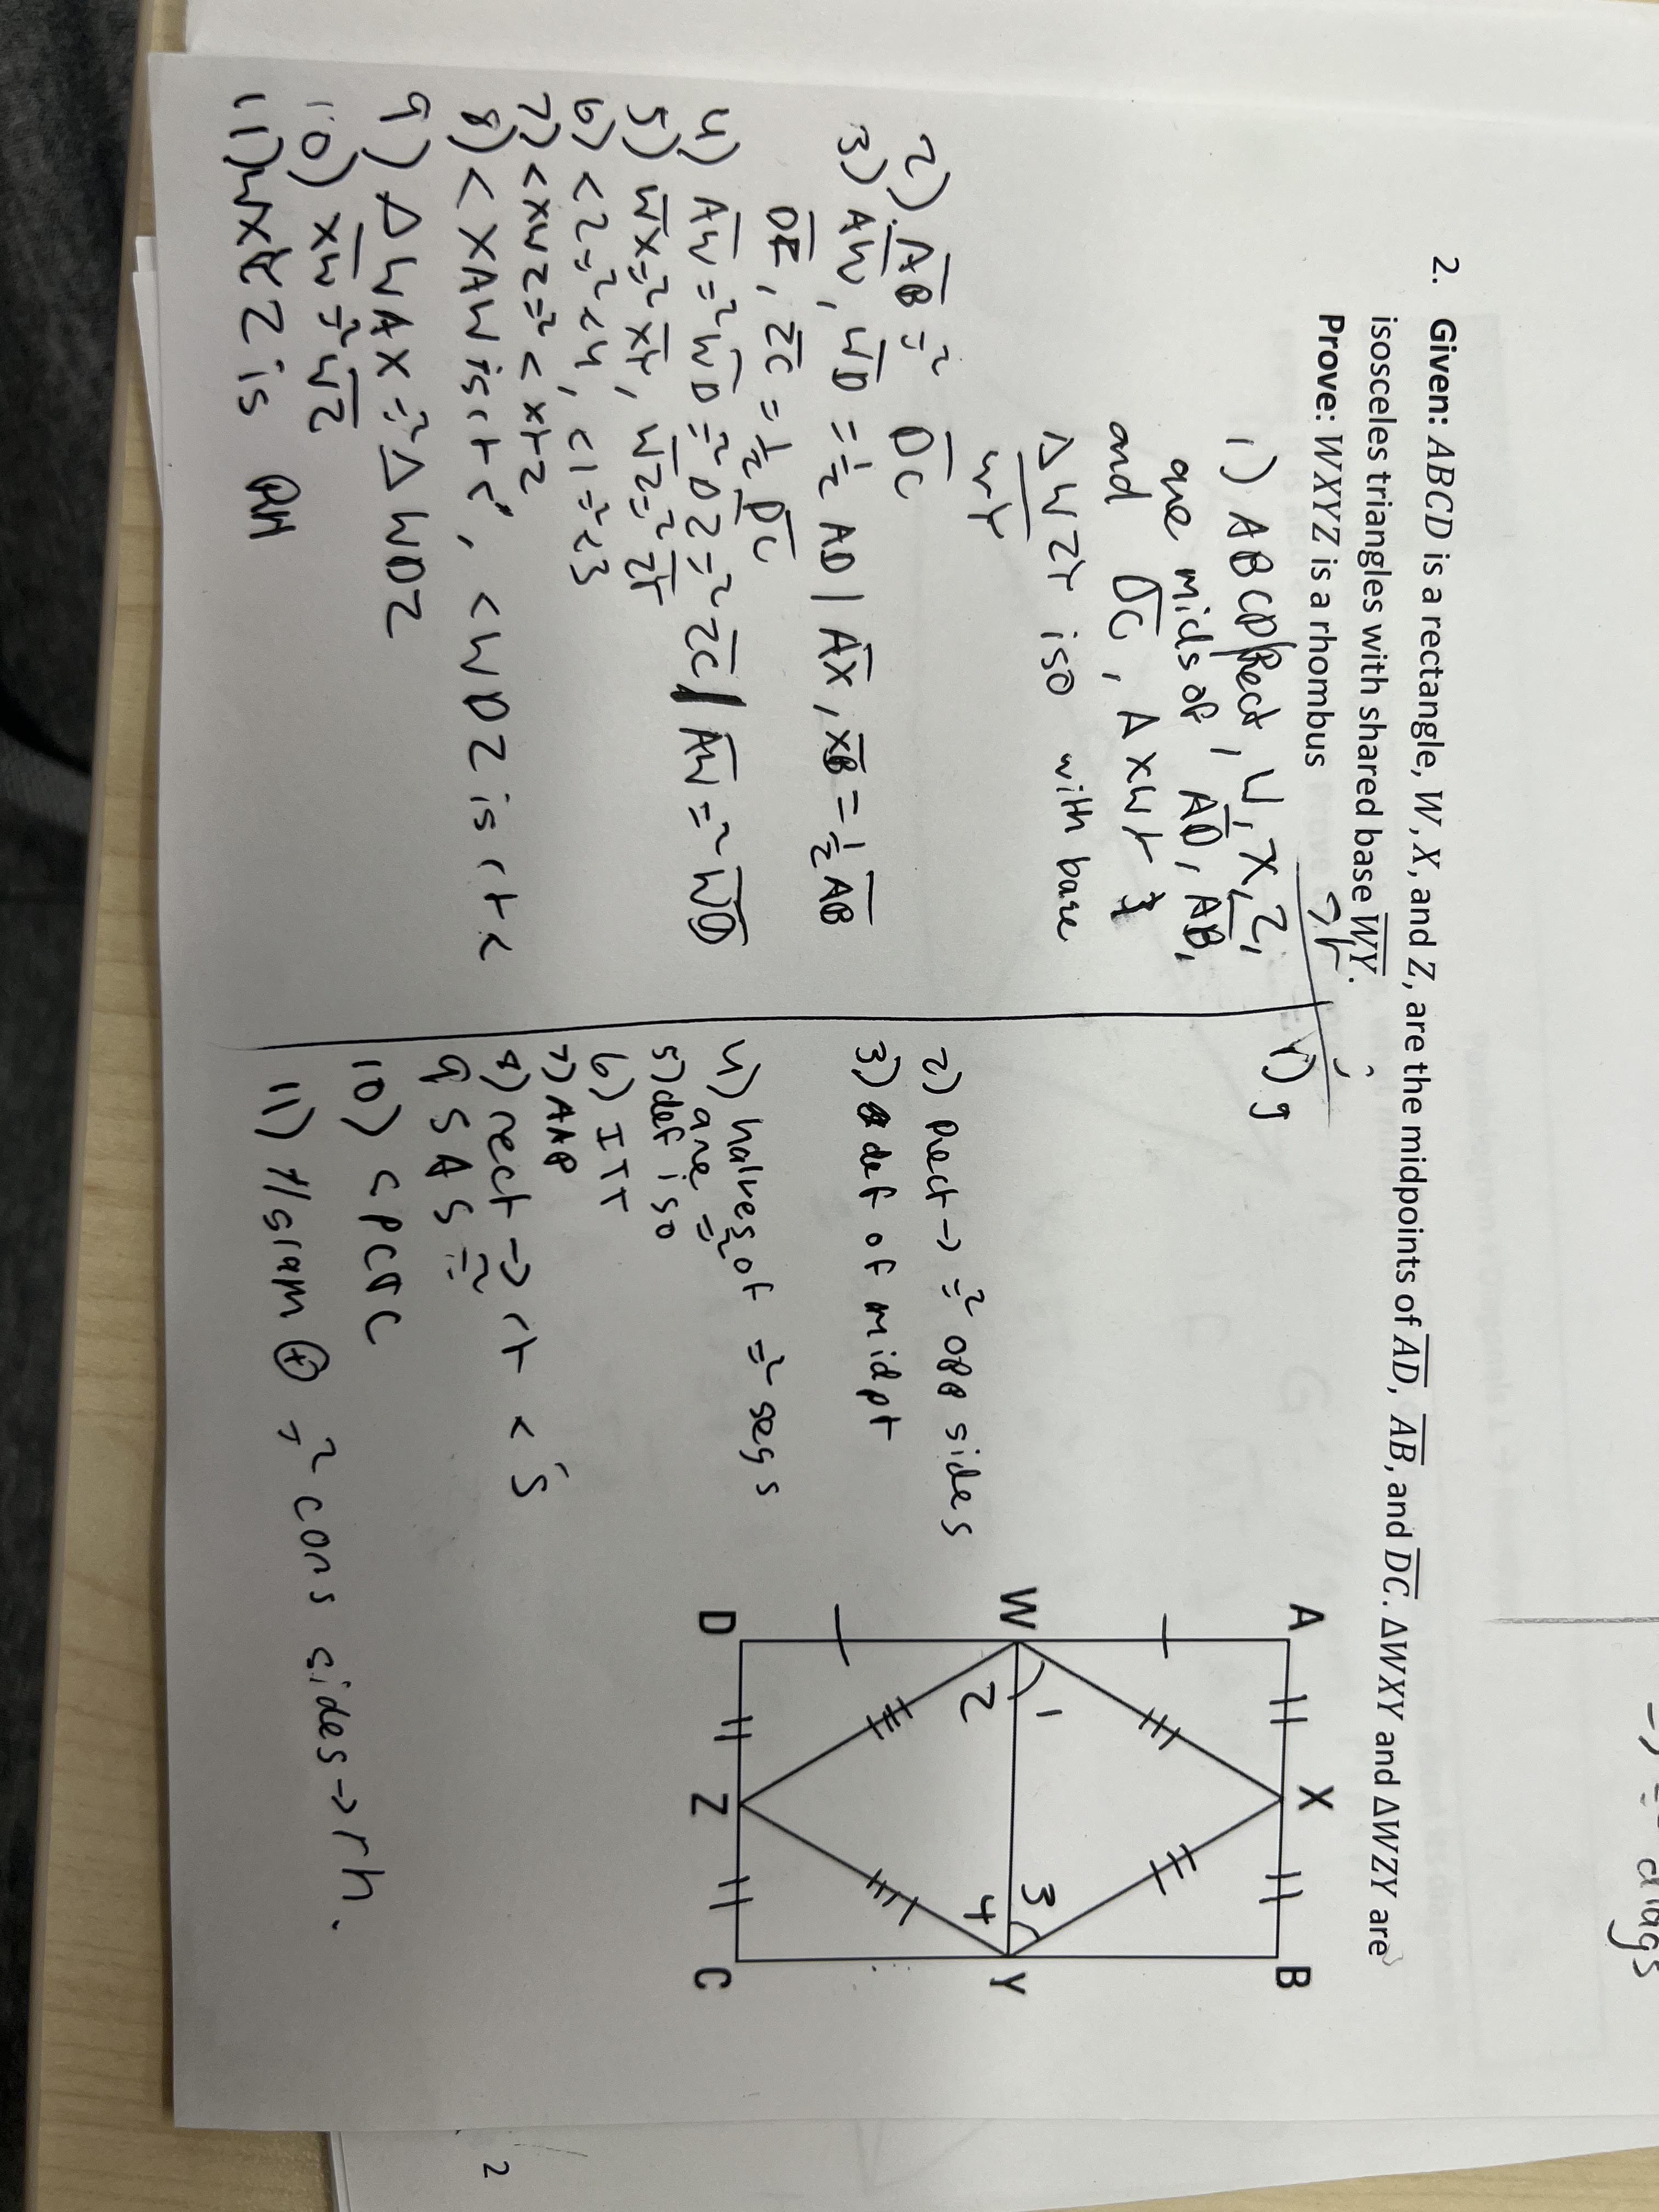 2. Given: ABCD is a rectangle, W, X, and Z, are the midpoints of AD, AB, and DC. ΔWXY and ΔWZY are
isosceles triangles with shared base WY.
Prove: WXYZ is a rhombus
St
r
1) ABCD Rect, W, X, Z,
are mids of AD, AB,
and DC, Δ XWY &
Δ WZY iso with base
WY
2) AB ≅ DC
3) AW, WD = 1/2 AD | AX, XB = 1/2 AB
DZ, ZC = 1/2 DC
4) AW ≅ WD ≅ DZ ≅ ZC | AW ≅ WD
5) WX ≅ XY, WZ ≅ ZY
6) <2 ≅ <4, <1 ≅ <3
7) <XWZ ≅ <XYZ
8) <XAW is rt, <WDZ is rt
9) Δ WAX ≅ Δ WDZ
10) XW ≅ WZ
11) WXYZ is RH
1) g
2) Rect → ≅ opp sides
3) def of midpt
4) halves of ≅ segs
are ≅
5) def iso
6) ITT
7) AAP
8) rect → rt <'s
9 SAS ≅
10) CPCTC
11) //gram ⊕ ≅ cons sides → rh.
A X B
W 1 3 Y
2 4
D Z C
diags
2